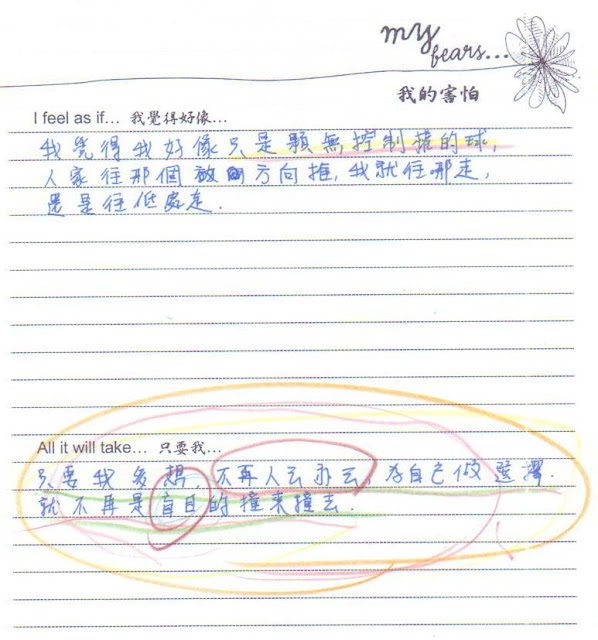 my
fears...
我的害怕
I feel as if... 我覺得好像...
我覺得我好像只是顆無控制權的球,
人家往那個方向推,我就往哪走,
還是往低處走.
All it will take... 只要我...
只要我多想,不再人云亦云,為自己做選擇.
就不再是盲目的撞來撞去.